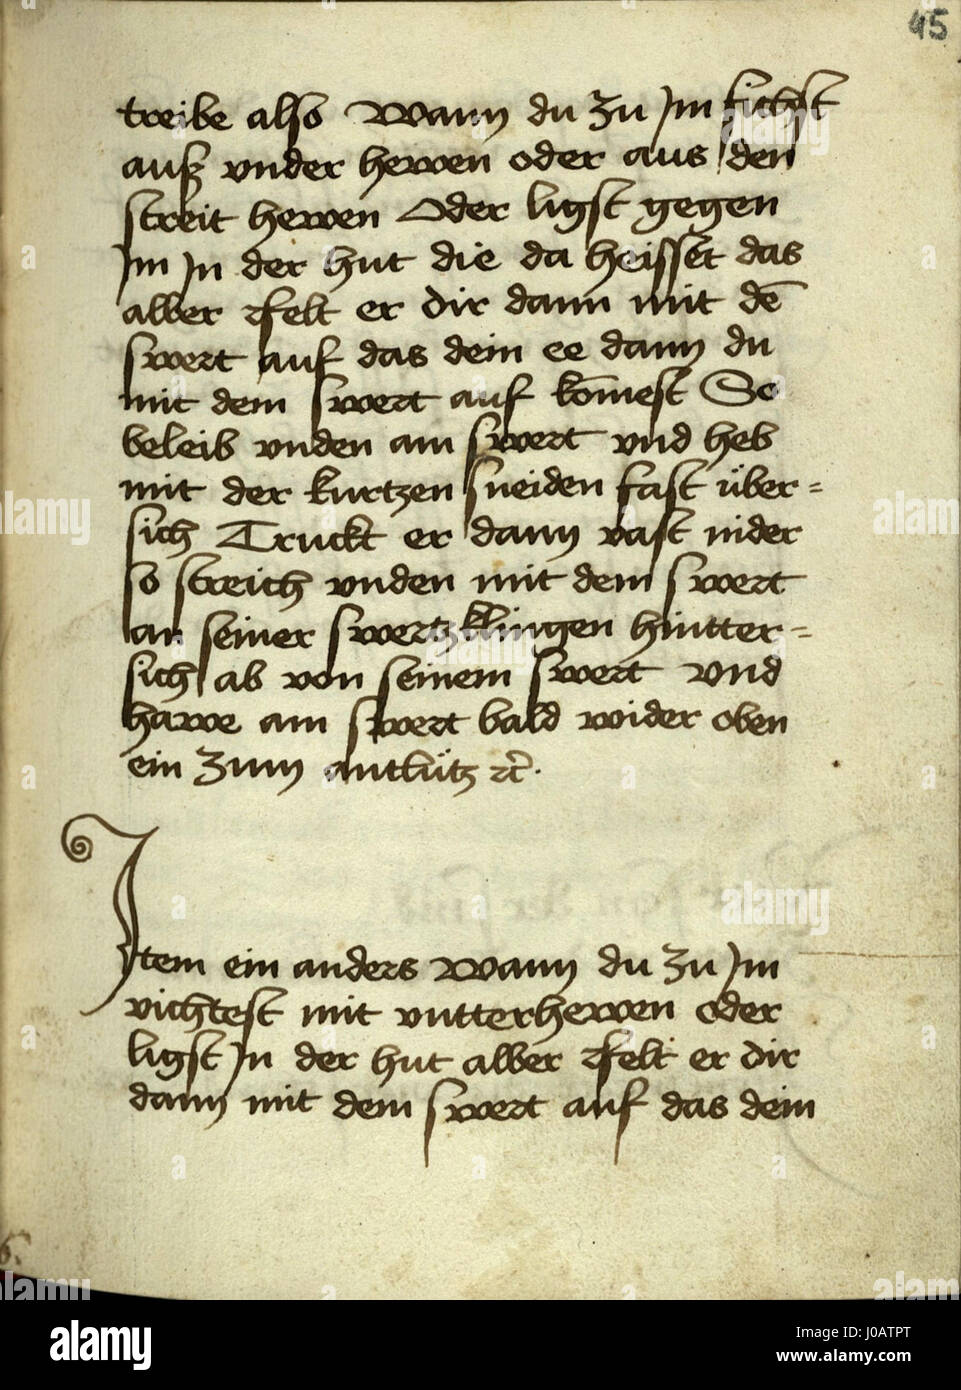 45
treibe also Wann du zu Jm fichst
auß vnder hewen oder aus den
streit hewen Oder ligst gegen
Jm Jn der hut die da heisset das
alber Felt er dir dann mit dē
swert auf das dein ee dann du
mit dem swert auf kōmest So
beleib vnden am swert vnd heb
mit der kurtzen sneiden fast über=
sich Truckt er dann vast nider
so streich vnden mit dem swert
an seiner swertz klingen hintter=
sich ab von seinem swert vnd
hawe am swert bald wider oben
ein zum antlütz ꝛc.
Jtem ein anders Wann du zu Jm
vichtest mit vntterhewen oder
ligst Jn der hut alber Felt er dir
dann mit dem swert auf das dein
alamy
Image ID: J0ATPT
www.alamy.com